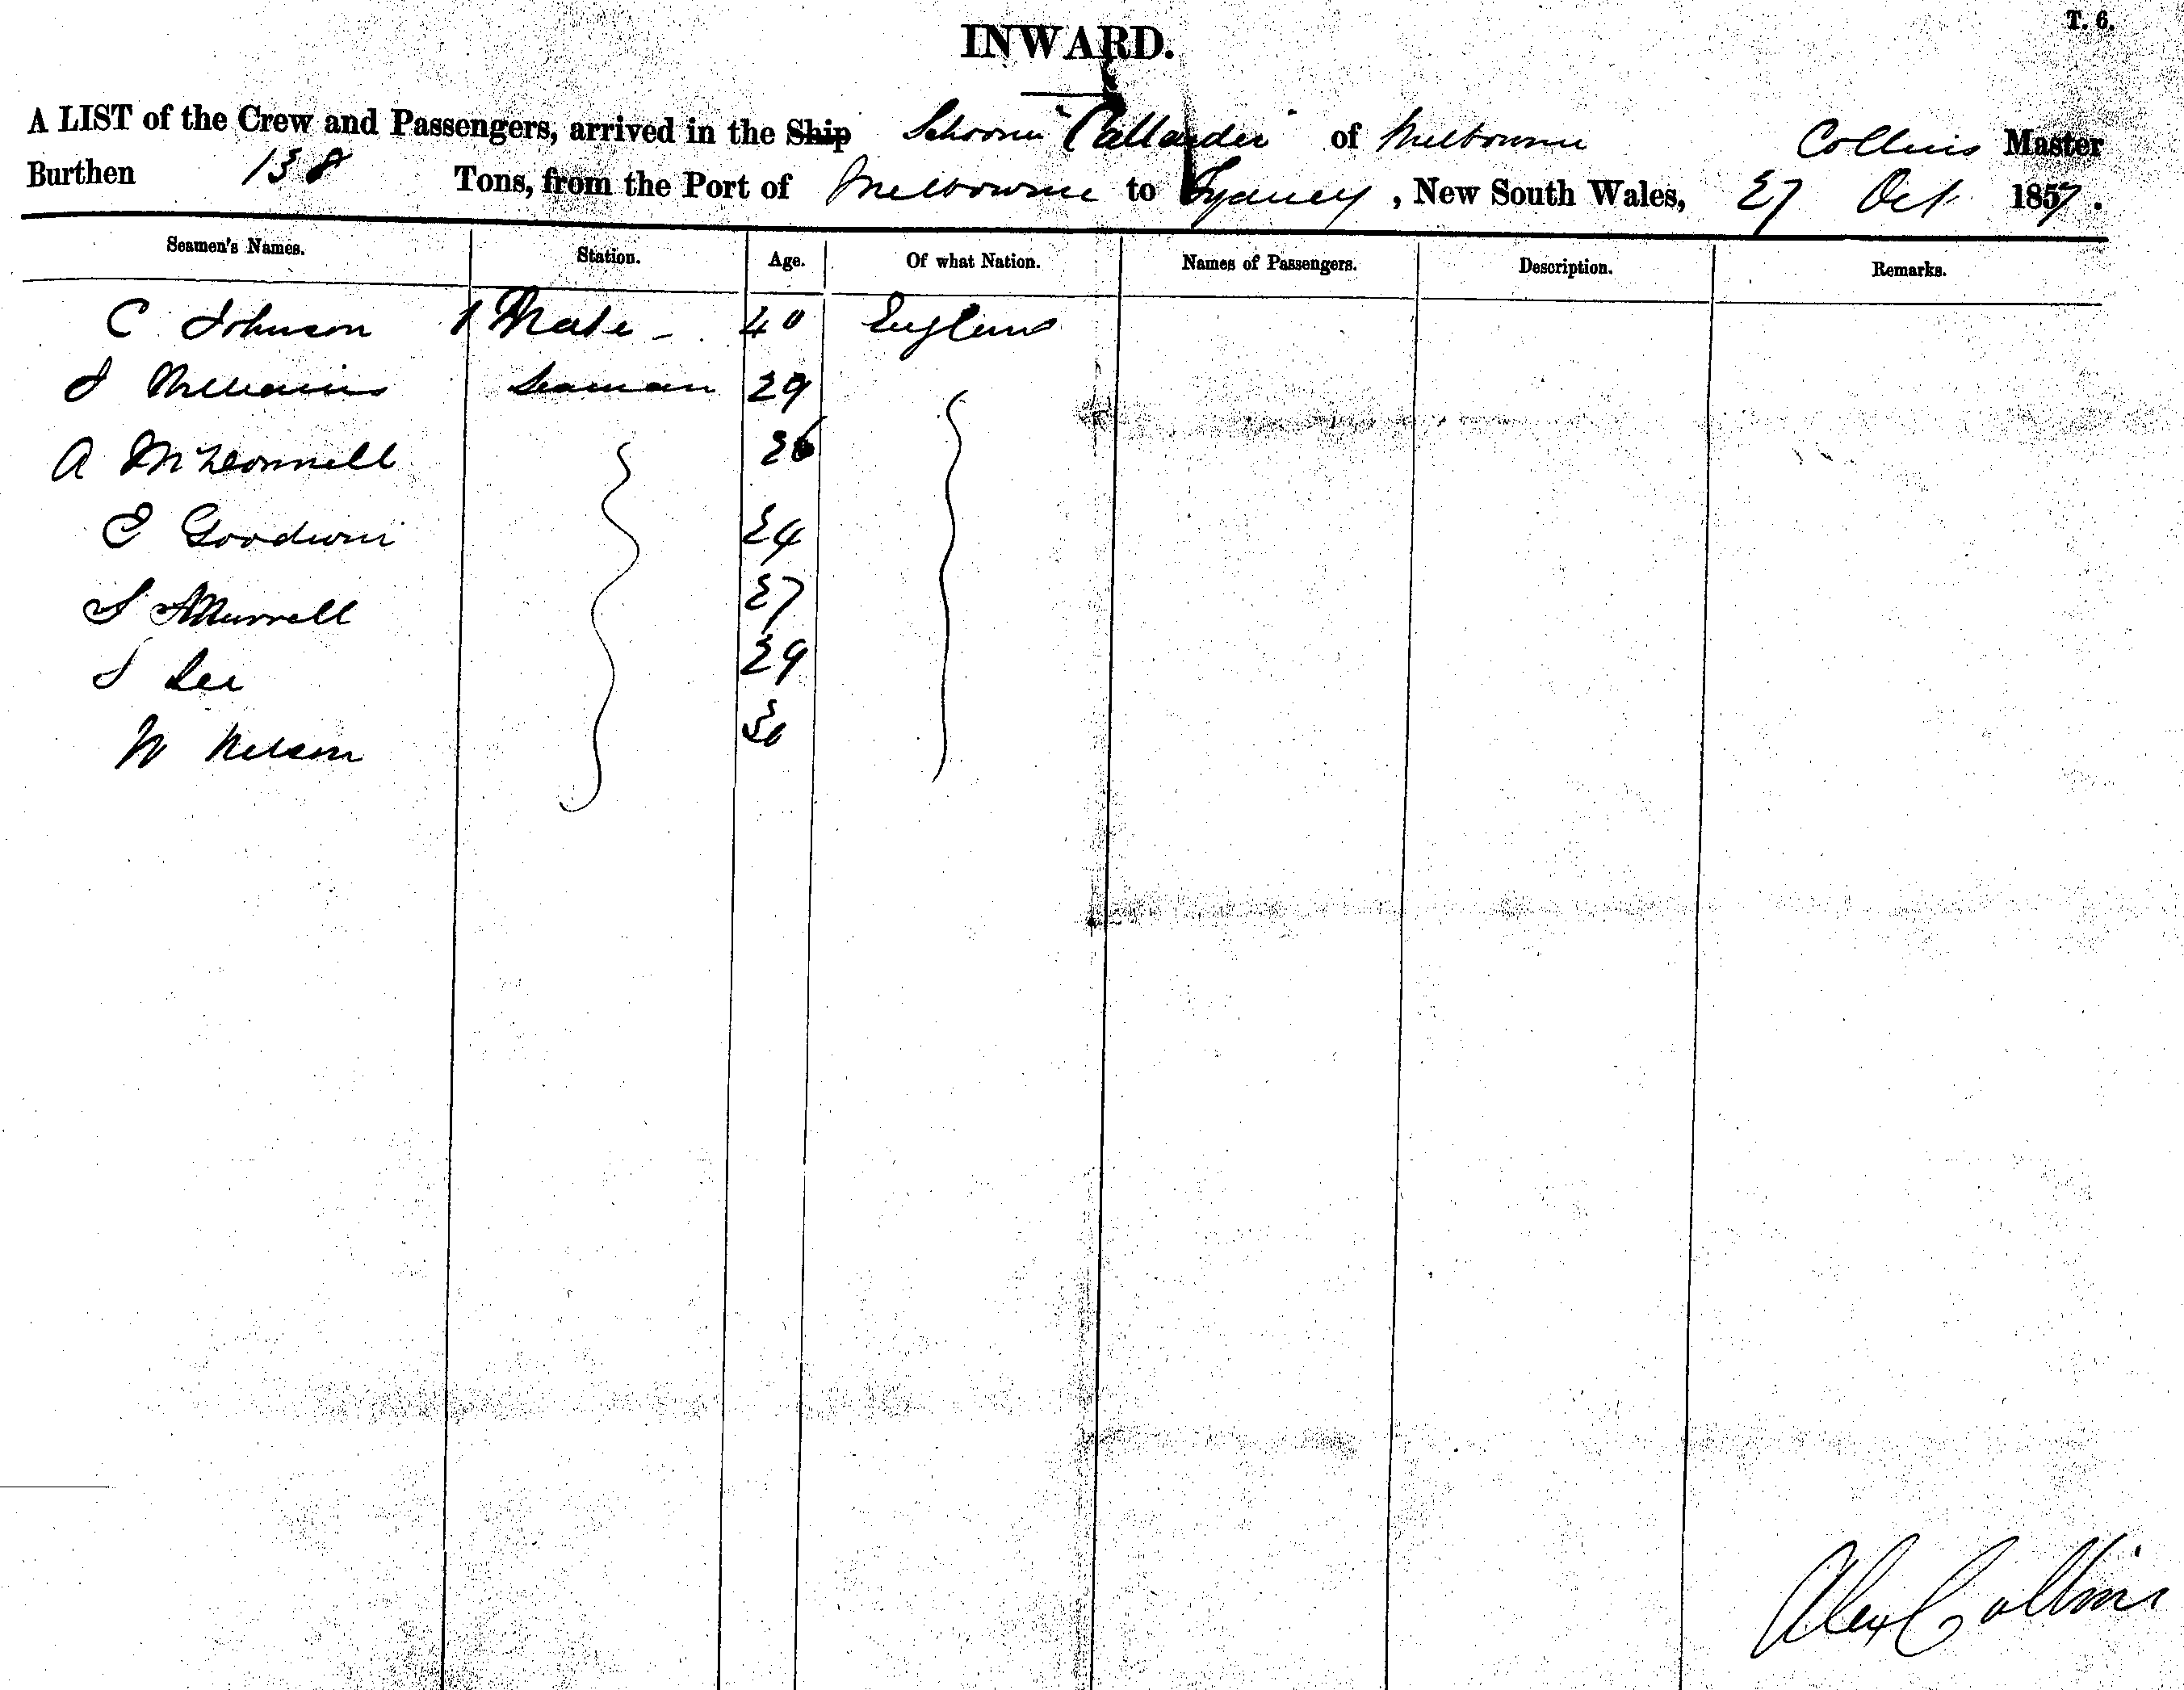 T. 6.
INWARD.
A LIST of the Crew and Passengers, arrived in the Ship Schooner "Callander" of Melbourne Collins Master
Burthen 138 Tons, from the Port of Melbourne to Sydney, New South Wales, 27 Oct 1857.
Seamen's Names. Station. Age. Of what Nation. Names of Passengers. Description. Remarks.
C Johnson 1 Mate - 40 England
J Seaman 29
A McDonnell 26
E Goodwin 24
S 27
J Lee 29
W Nelson 30
Alex Collins